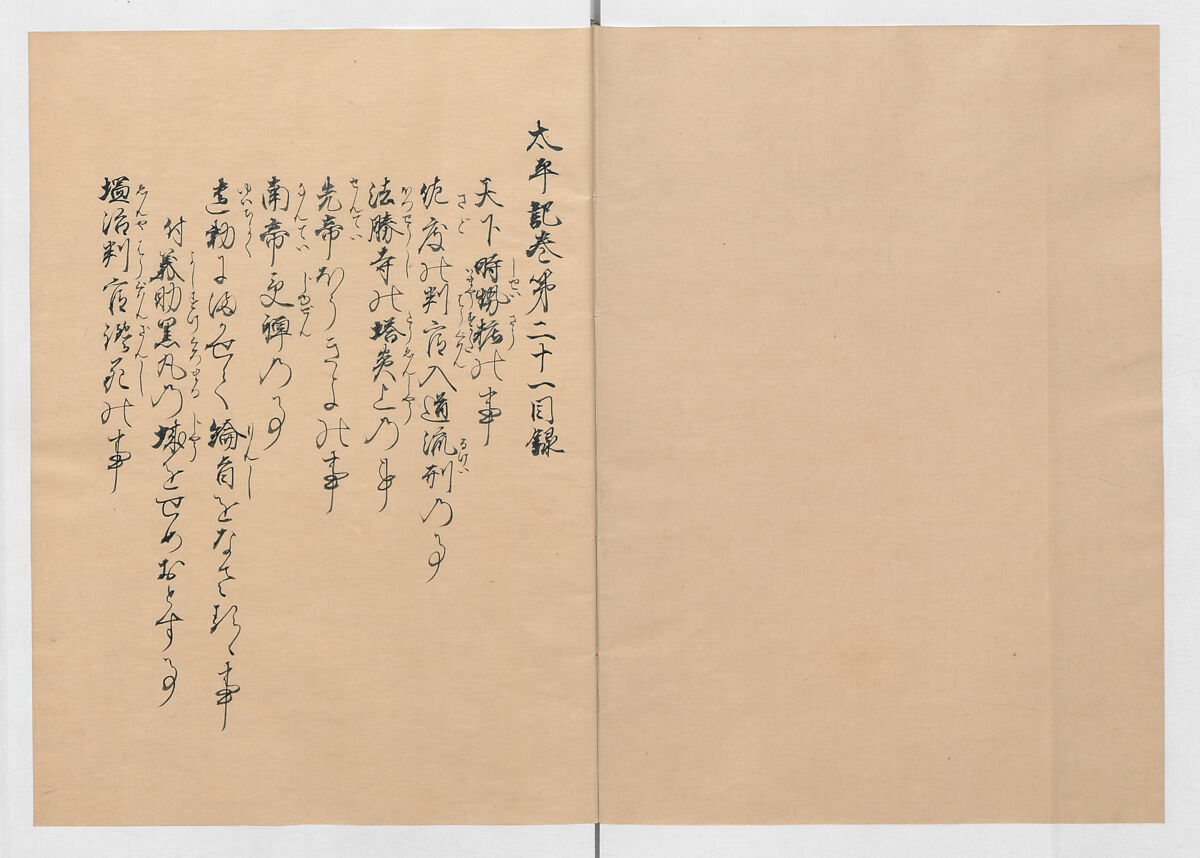 太平記巻第二十一目録
天下時勢粧の事
佐度の判官入道流刑の事
法勝寺の塔炎上の事
先帝ほうきよの事
南帝受禅の事
遺勅にまかせて綸旨をなさるゝ事
付義助黒丸の城をせめおとす事
塩冶判官讒死の事